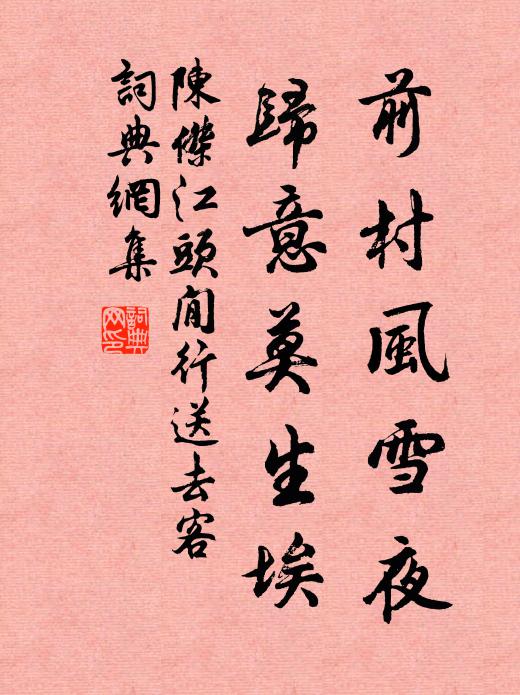 前村風雪夜
歸意莫生埃
陳傑江頭閒行送去客
詞典網集
詞典網印